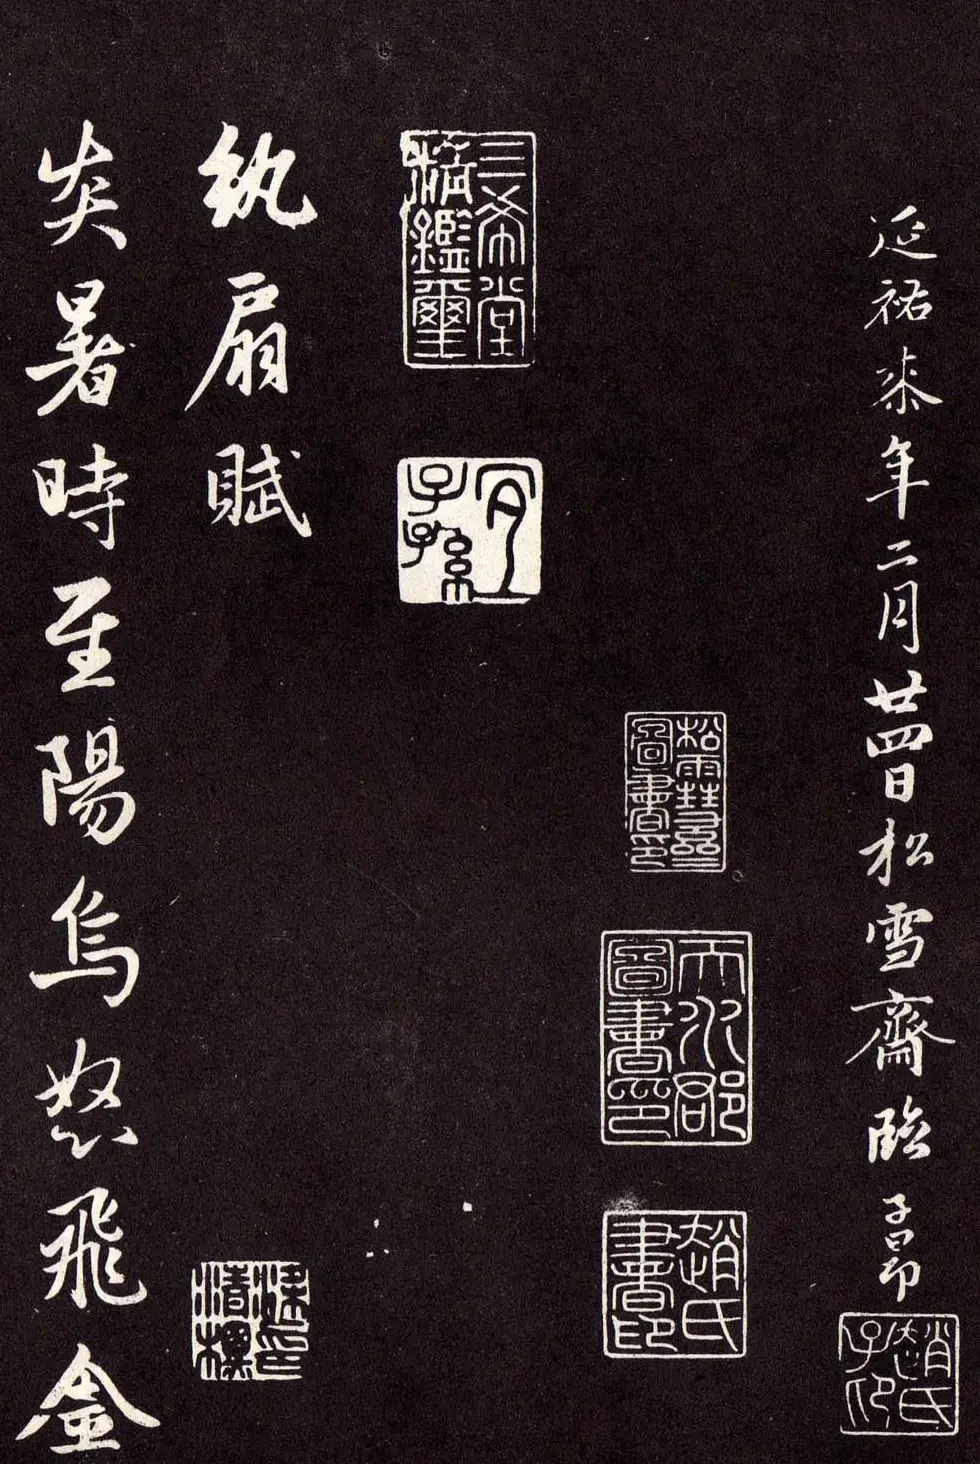 延祐桼年二月廿四日松雪齋臨子昂
趙氏子昂
松雪齋圖書印
天水郡圖書印
趙氏書印
三希堂精鑑璽
宜子孫
紈扇賦
梁印清標
炎暑時至陽烏怒飛金